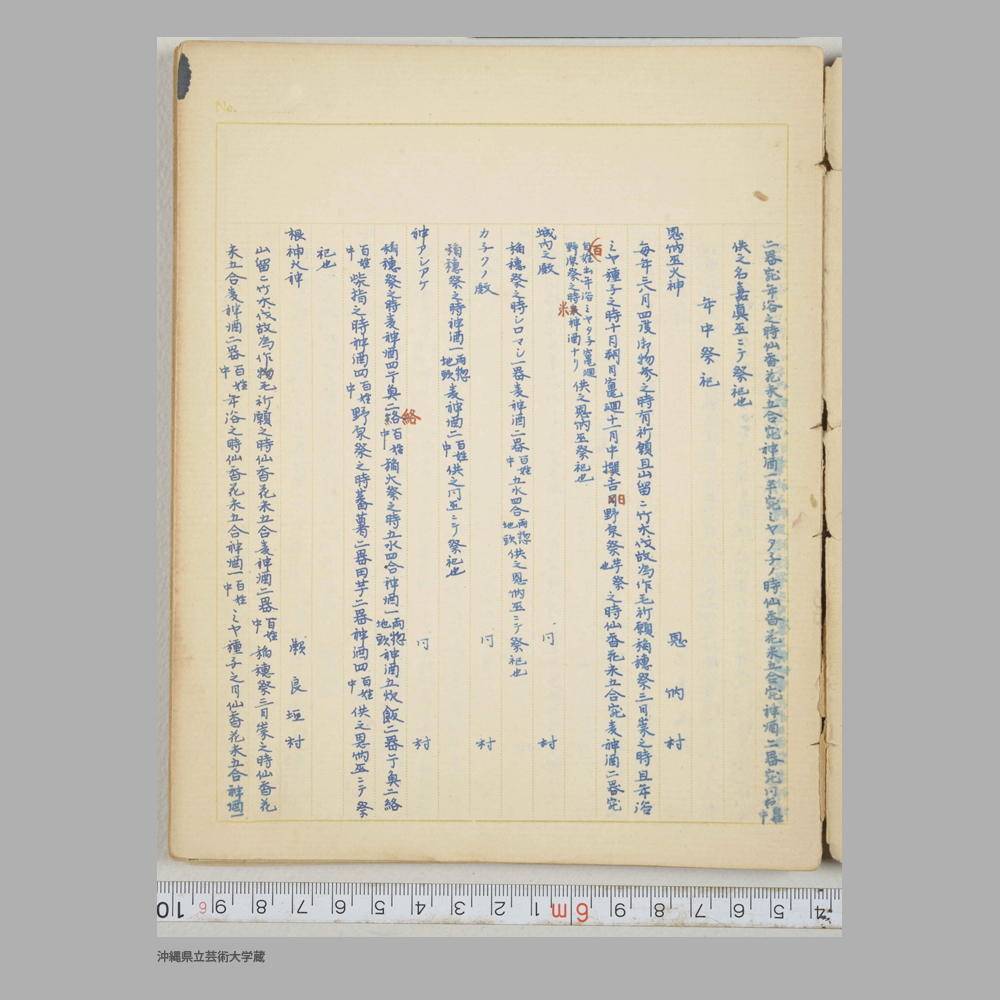 二器宛年浴之時仙香花米五合宛神酒一半宛ミヤタ子ノ時仙香花米五合宛神酒二器宛同村百姓中
供之名嘉真巫ニテ祭祀也
年中祭祀
恩納巫火神 恩納村
毎年三八月四度御物参之時有祈願且山留ニ竹木伐故為作毛祈願稲穂祭三日崇之時且年浴
ミヤ種子之時十月朔日竈廻十二月中撰吉日野原祭芋祭之時仙香花米五合宛麦神酒二器宛也
百姓中年浴ミヤタ子竈廻野原祭之時米神酒ナリ供之恩納巫祭祀也
城内之殿 同村
稲穂祭之時シロマシ一器麦神酒二器百姓中五水四合両惣地頭供之恩納巫ニテ祭祀也
カチクノ殿 同村
稲穂祭之時神酒一両惣地頭麦神酒二百姓中供之同巫ニテ祭祀也
神アシアケ 同村
稲穂祭之時麦神酒四干魚二絡百姓中稲大祭之時五水四合神酒一両惣地頭神酒五炊飯二器干魚二絡
百姓中柴指之時神酒四百姓中野原祭之時蕃薯二器田芋二器神酒四百姓中供之恩納巫ニテ祭
祀也
根神火神 瀬良垣村
山留ニ竹木伐故為作物毛祈願之時仙香花米五合麦神酒二器百姓中稲穂祭三日崇之時仙香花
米五合麦神酒二器百姓中年浴之時仙香花米五合神酒一百姓中ミヤ種子之月仙香花米五合神酒一
沖縄県立芸術大学蔵